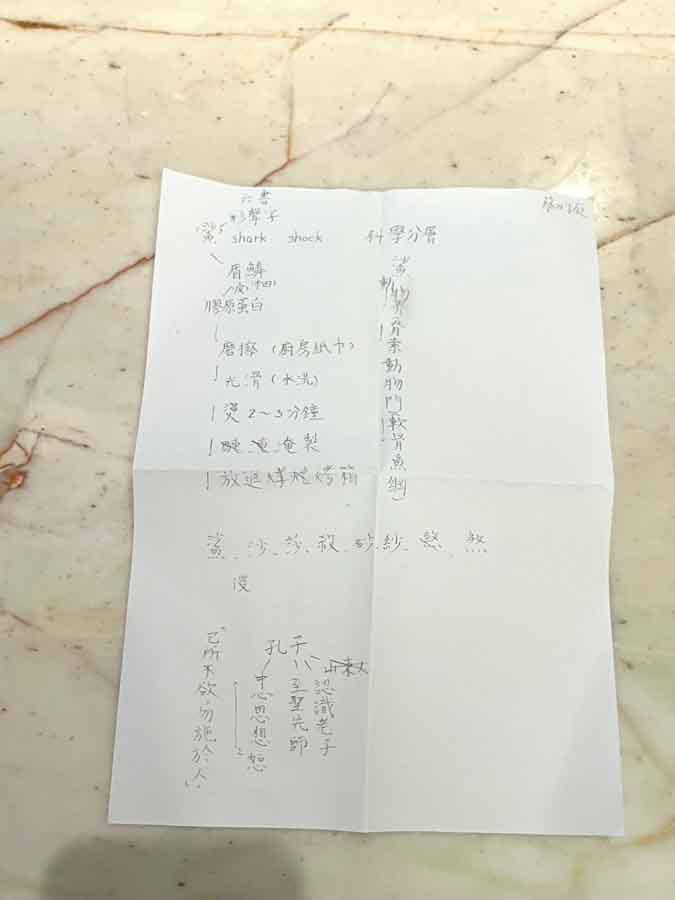 六書
形聲字
鯊 shark shock 科學分層
盾鱗
膠原蛋白
磨擦(廚房紙巾)
光滑(水洗)
燙2~3分鐘
淹製
放進烤箱
鯊
動物界
脊索動物門
軟骨魚綱
鯊、沙、莎、殺、砂、紗、煞、煞
沒
孔子
山東人
認識老子
至聖先師
中心思想:恕
"己所不欲,勿施於人"